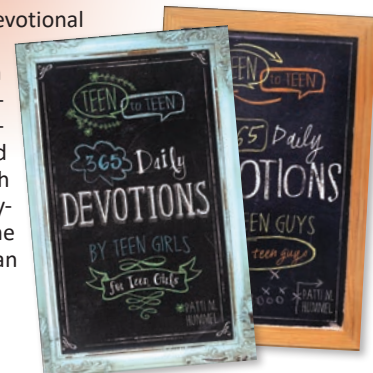 evotional
d
h
y-
ne
an
TEEN to TEEN
365 Daily
DEVOTIONS
BY TEEN GIRLS
for Teen Girls
PATTI M.
HUMMEL
EEN to TEEN
65 Daily
OTIONS
EEN GUYS
teen guys
PATTI M.
HUMMEL